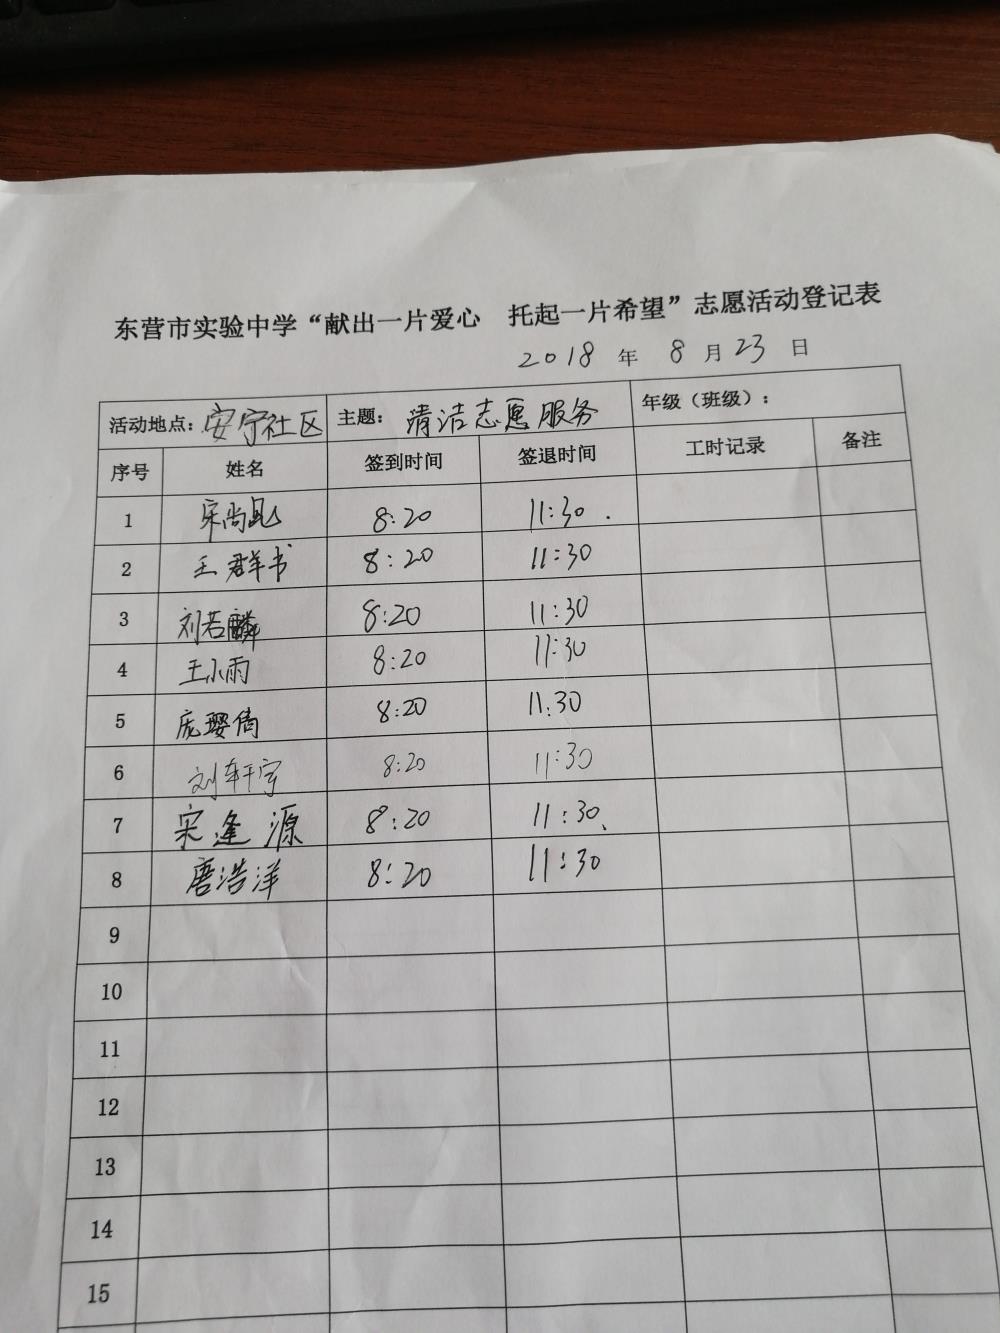 东营市实验中学“献出一片爱心 托起一片希望”志愿活动登记表
2018 年 8 月 23 日
活动地点：安宁社区 主题：清洁志愿服务 年级（班级）：
序号 姓名 签到时间 签退时间 工时记录 备注
1 宋尚昆 8:20 11:30
2 王群书 8:20 11:30
3 刘若麟 8:20 11:30
4 王小雨 8:20 11:30
5 庞璎倩 8:20 11:30
6 刘轩宇 8:20 11:30
7 宋逢源 8:20 11:30
8 唐浩洋 8:20 11:30
9
10
11
12
13
14
15